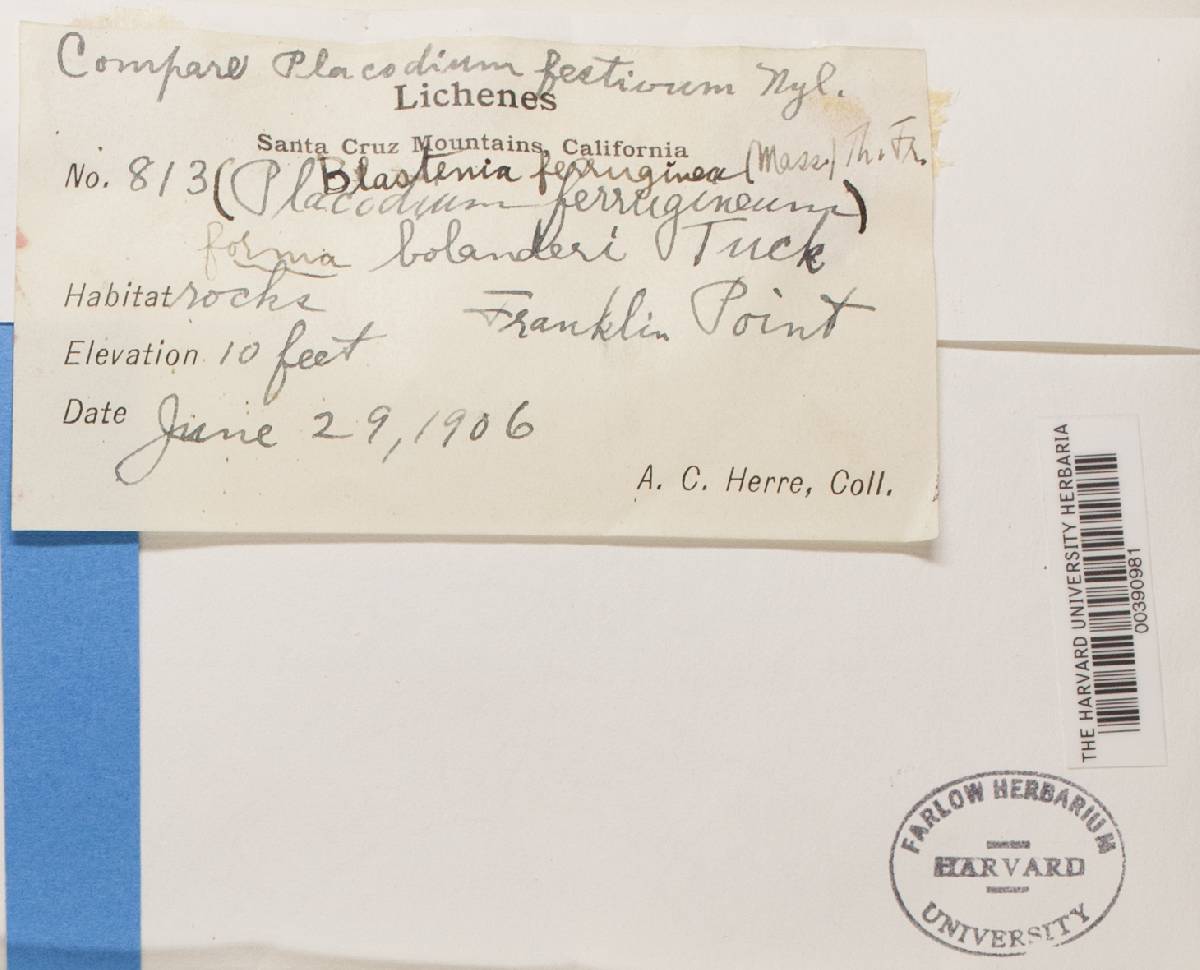 Compare Placodium festivum Nyl.
Lichenes
Santa Cruz Mountains, California
Blastenia ferruginea (Mass.) Th. Fr.
No. 813 (Placodium ferrugineum)
forma bolanderi Tuck
Habitat rocks Franklin Point
Elevation 10 feet
Date June 29, 1906
A. C. Herre, Coll.
THE HARVARD UNIVERSITY HERBARIA
00390981
FARLOW HERBARIUM
HARVARD
UNIVERSITY